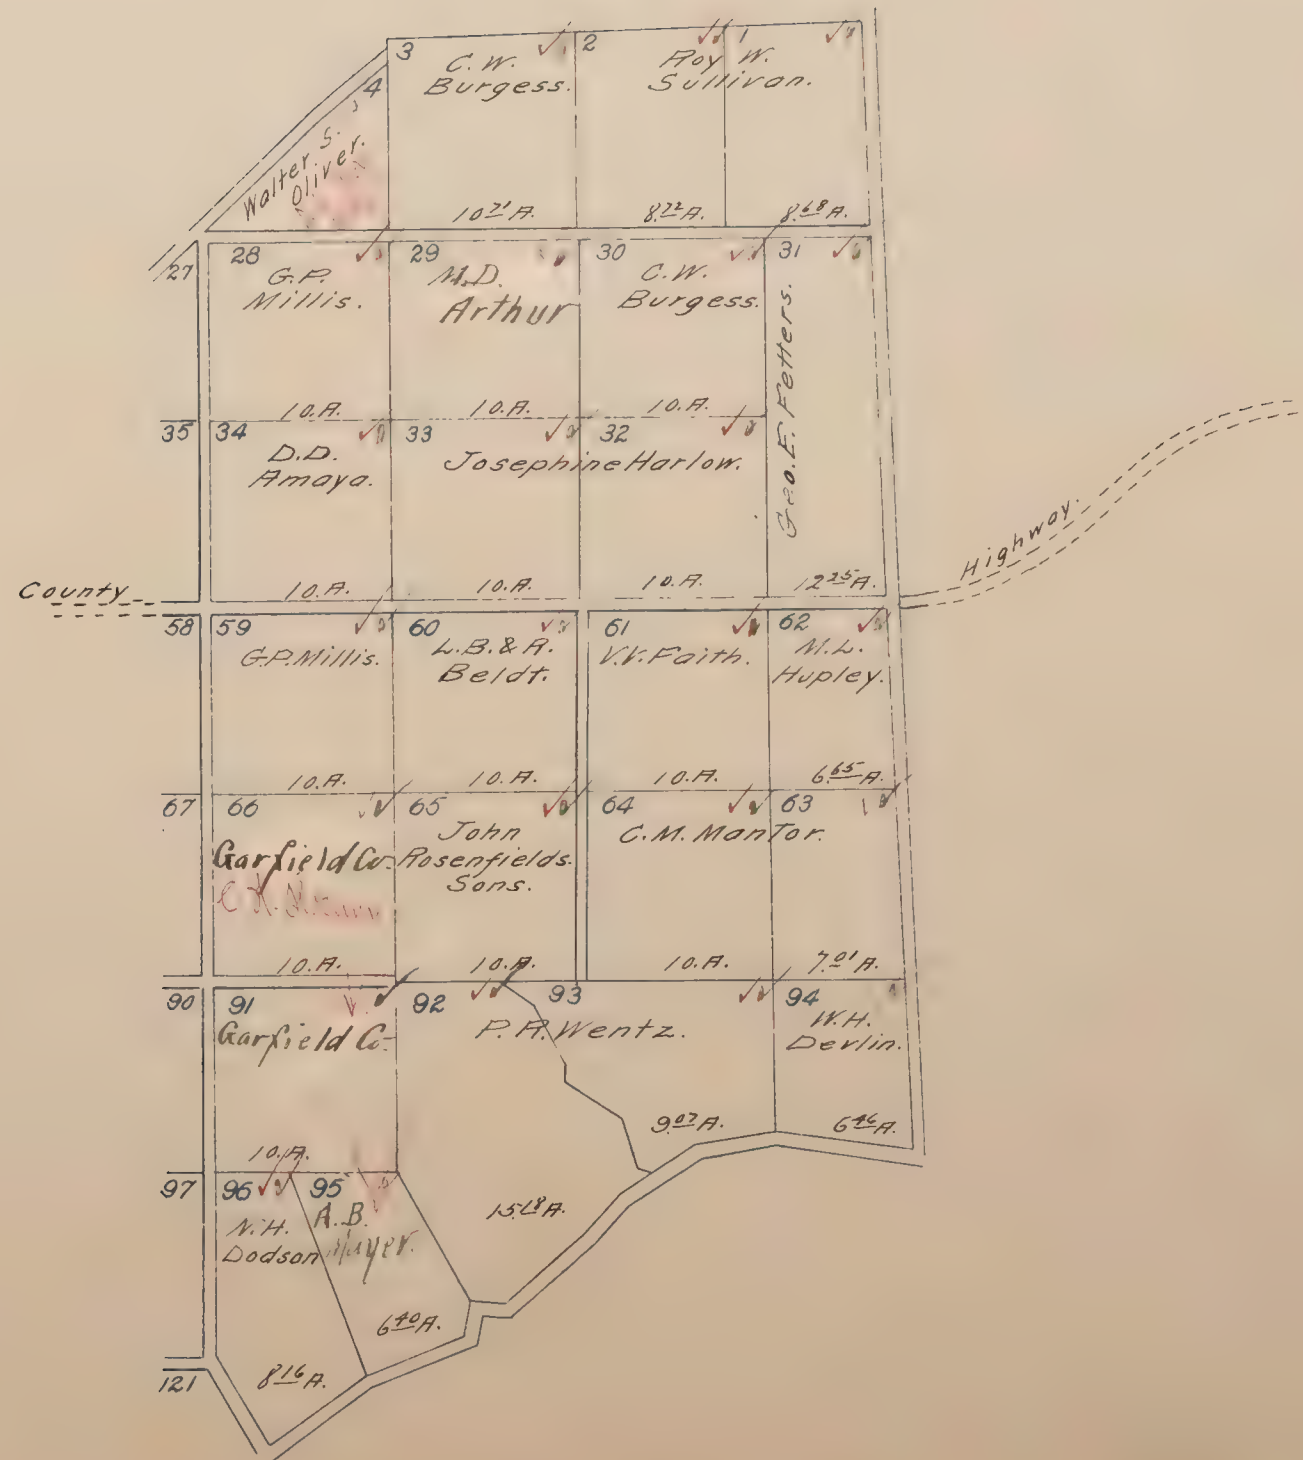 3
C.W.
Burgess.
10 71 A.
2
1
Roy W.
Sullivan.
8 22 A.
8 68 A.
4
Walter S.
Oliver.
27
28
G.P.
Millis.
10.A.
29
M.D.
Arthur
10.A.
30
C.W.
Burgess.
10.A.
31
Geo.E. Fetters.
12 25 A.
35
34
D.D.
Amaya.
10.A.
33
32
Josephine Harlow.
10.A.
10.A.
County
Highway.
58
59
G.P. Millis.
10.A.
60
L.B. & R.
Beldt.
10.A.
61
V.V. Faith.
10.A.
62
M.L.
Hupley.
6 65 A.
67
66
Garfield Co.
10.A.
65
John
Rosenfields.
Sons.
10.A.
64
63
C.M. ManTor.
10.A.
7 01 A.
90
91
Garfield Co.
10.A.
92
93
P.R. Wentz.
15 18 A.
9 07 A.
94
W.H.
Devlin.
6 46 A.
97
96
N.H.
Dodson
8 16 A.
95
A.B.
6 40 A.
121